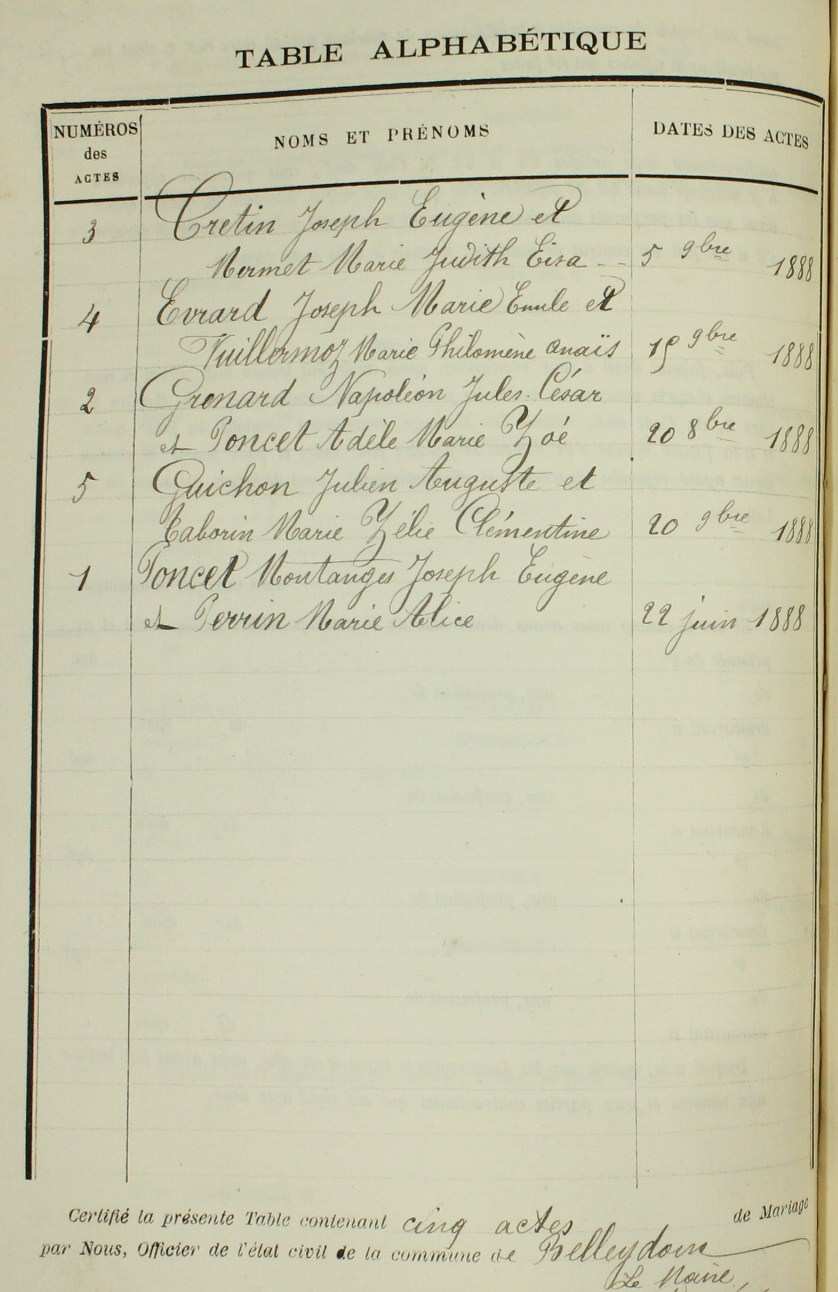 TABLE ALPHABÉTIQUE
NUMÉROS des ACTES NOMS ET PRÉNOMS DATES DES ACTES
3 Cretin Joseph Eugène et
Mermet Marie Judith Eisa 5 9bre 1888
4 Evrard Joseph Marie Emile et
Vuillermoz Marie Philomène Anaïs 15 9bre 1888
2 Grenard Napoléon Jules César
et Poncet Adèle Marie Zoé 20 8bre 1888
5 Guichon Julien Auguste et
Taborin Marie Zélie Clémentine 20 9bre 1888
1 Poncet Montanges Joseph Eugène
et Perrin Marie Alice 22 juin 1888
Certifié la présente Table contenant cinq actes de Mariage
par Nous, Officier de l'état civil de la commune de Belleydoux
Le Maire,